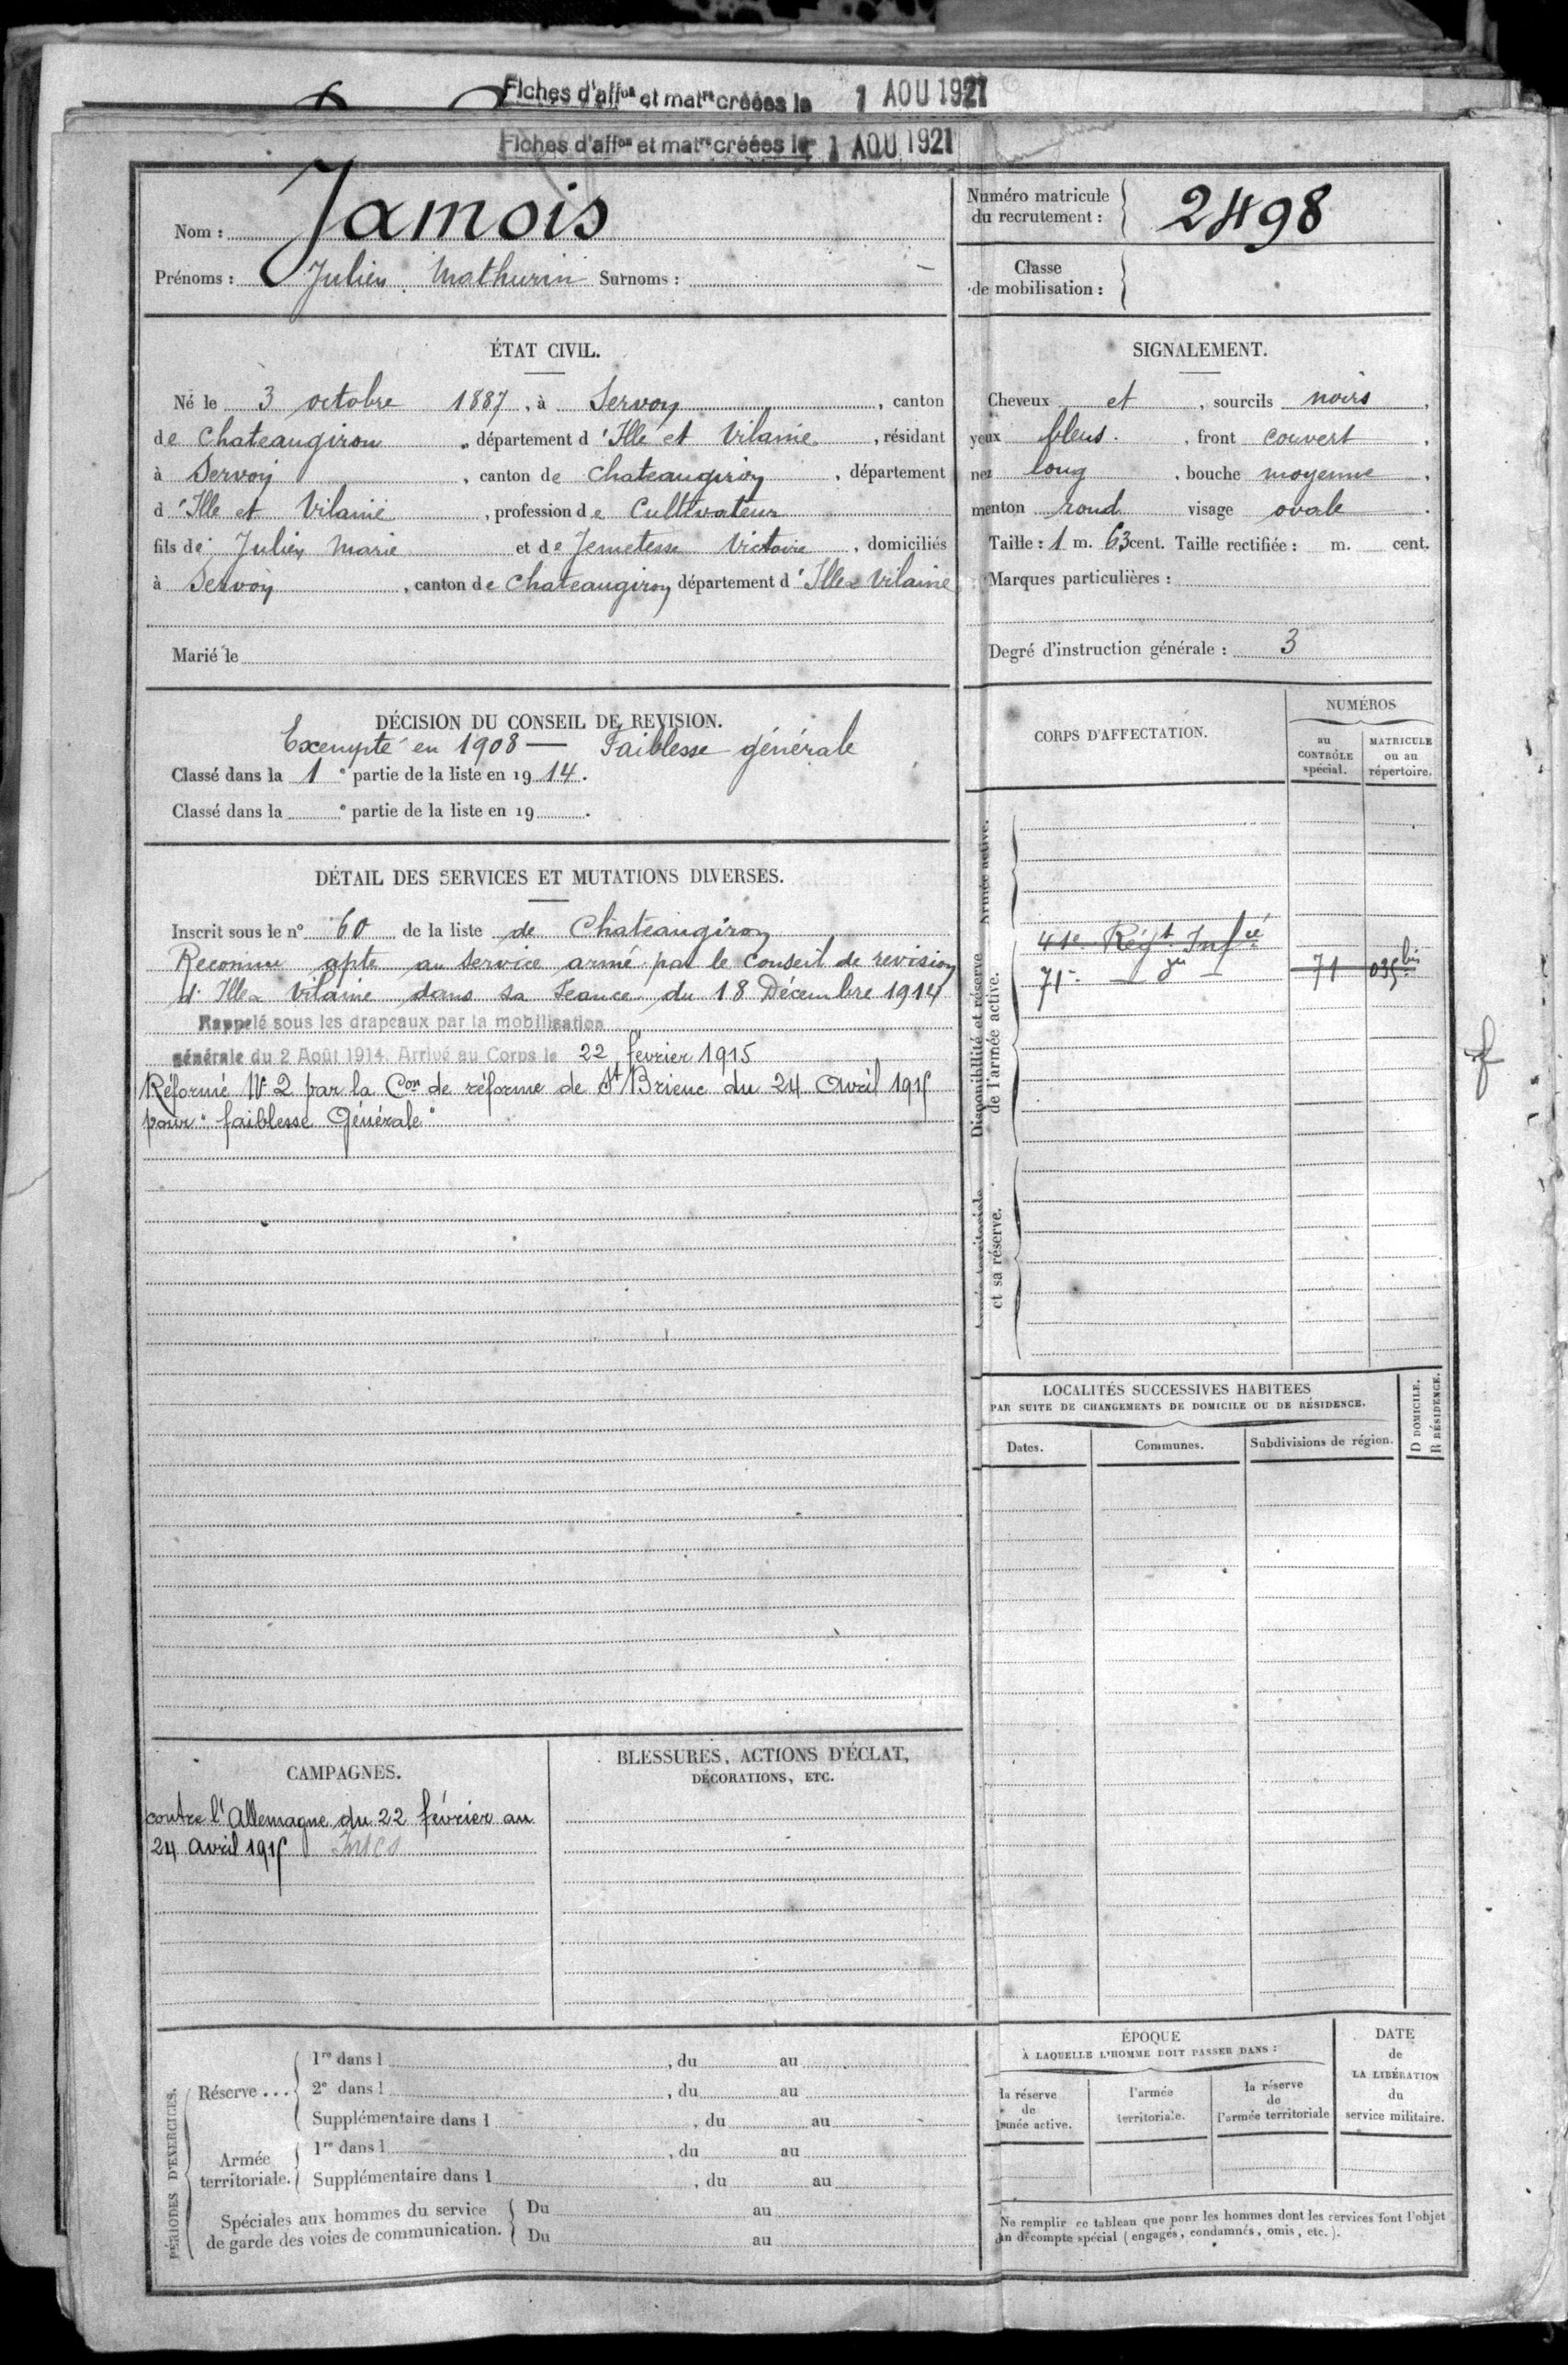 Fiches d'affon et matre créées le 1 AOU 1921
Fiches d'affon et matre créées le 1 AOU 1921
Nom : Jamois
Prénoms : Julien Mathurin Surnoms : —
Numéro matricule du recrutement : 2498
Classe de mobilisation :
ÉTAT CIVIL.
Né le 3 octobre 1887, à Servon, canton
de Chateaugiron, département d'Ille et Vilaine, résidant
à Servon, canton de Chateaugiron, département
d'Ille et Vilaine, profession de Cultivateur
fils de Julien Marie et de Victoire, domiciliés
à Servon, canton de Chateaugiron département d'Ille & Vilaine
Marié le
SIGNALEMENT.
Cheveux et, sourcils noirs,
yeux bleus, front couvert,
nez long, bouche moyenne,
menton rond visage ovale.
Taille : 1 m. 63 cent. Taille rectifiée : m. cent.
Marques particulières :
Degré d'instruction générale : 3
DÉCISION DU CONSEIL DE REVISION.
Exempté en 1908 — Faiblesse générale
Classé dans la 1e partie de la liste en 1914.
Classé dans la e partie de la liste en 19 .
DÉTAIL DES SERVICES ET MUTATIONS DIVERSES.
Inscrit sous le n° 60 de la liste de Chateaugiron
Reconnu apte au service armé par le Conseil de revision
d'Ille & Vilaine dans sa Seance du 18 Décembre 1914
Rappelé sous les drapeaux par la mobilisation
générale du 2 Août 1914. Arrivé au Corps le 22 février 1915
Réformé N° 2 par la Con de réforme de St Brieuc du 24 Avril 1915
pour "faiblesse Générale"
CORPS D'AFFECTATION.
NUMÉROS
au CONTRÔLE spécial.
MATRICULE ou au répertoire.
Armée active.
Disponibilité et réserve de l'armée active.
41e Régt Infie
71e — — 71 035 bis
et sa réserve.
LOCALITÉS SUCCESSIVES HABITEES
PAR SUITE DE CHANGEMENTS DE DOMICILE OU DE RÉSIDENCE.
D DOMICILE.
R RÉSIDENCE.
Dates. Communes. Subdivisions de région.
CAMPAGNES.
contre l'Allemagne du 22 février au
24 avril 1915
BLESSURES, ACTIONS D'ÉCLAT,
DÉCORATIONS, ETC.
PÉRIODES D'EXERCICES.
Réserve ...
1re dans l , du au
2e dans l , du au
Supplémentaire dans l , du au
Armée territoriale.
1re dans l , du au
Supplémentaire dans l , du au
Spéciales aux hommes du service
de garde des voies de communication.
Du au
Du au
ÉPOQUE
À LAQUELLE L'HOMME DOIT PASSER DANS :
la réserve de l'armée active.
l'armée territoriale.
la réserve de l'armée territoriale
DATE de LA LIBÉRATION du service militaire.
Ne remplir ce tableau que pour les hommes dont les services font l'objet
d'un décompte spécial (engagés, condamnés, omis, etc.).